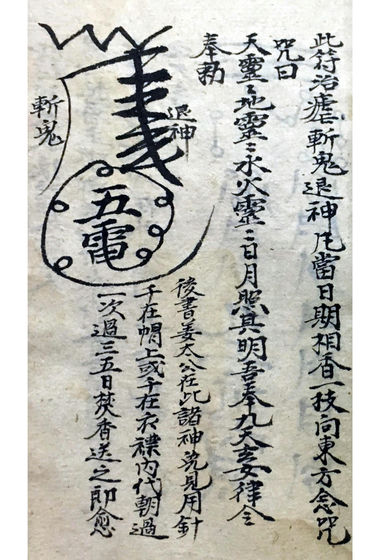 此符治瘧斬鬼退神凡當日期相香一技向東方念咒
咒曰
天靈々地靈〻水火靈〻日月照其明吾奉九天玄女律令
奉勅
退神
斬鬼
五電
後書姜太公在此諸神兔見用針
千在帽上或千在衣襟内代朝過
一次過三五日焚香送之即愈